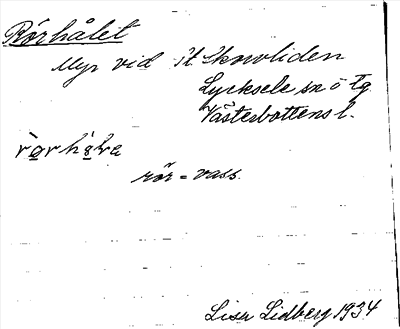 Rörhålet
Myr vid St. Skarvliden
Lycksele sn o tg
Västerbottens l.
rör = vass.
Lisa Lidberg 1934